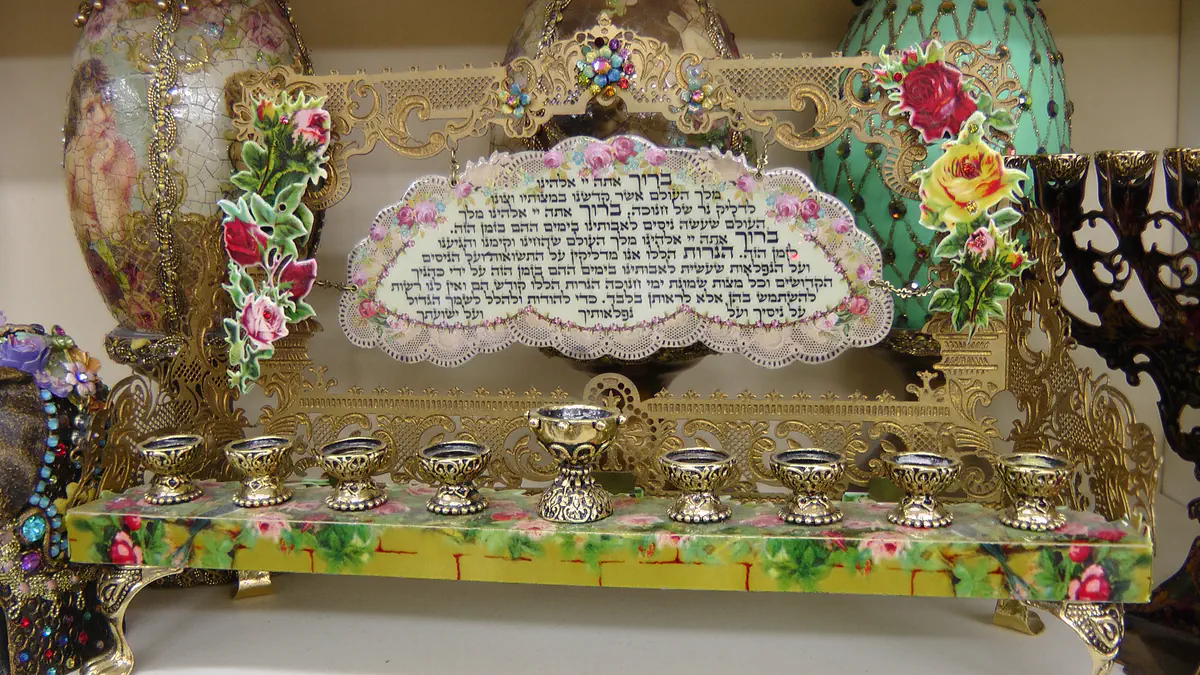 ברוך אתה יי אלהינו
מלך העולם אשר קדשנו במצותיו וצונו
להדליק נר של חנוכה. ברוך אתה יי אלהינו מלך
העולם שעשה ניסים לאבותינו בימים ההם בזמן הזה.
ברוך אתה יי אלהינו מלך העולם שהחיינו וקימנו והגיענו
לזמן הזה. הנרות הללו אנו מדליקין על התשועות ועל הניסים
ועל הנפלאות שעשית לאבותינו בימים ההם בזמן הזה על ידי כהניך
הקדושים וכל מצות שמונת ימי חנוכה הנרות הללו קודש הם ואין לנו רשות
להשתמש בהן אלא לראותן בלבד. כדי להודות ולהלל לשמך הגדול
על ניסיך ועל נפלאותיך ועל ישועתך